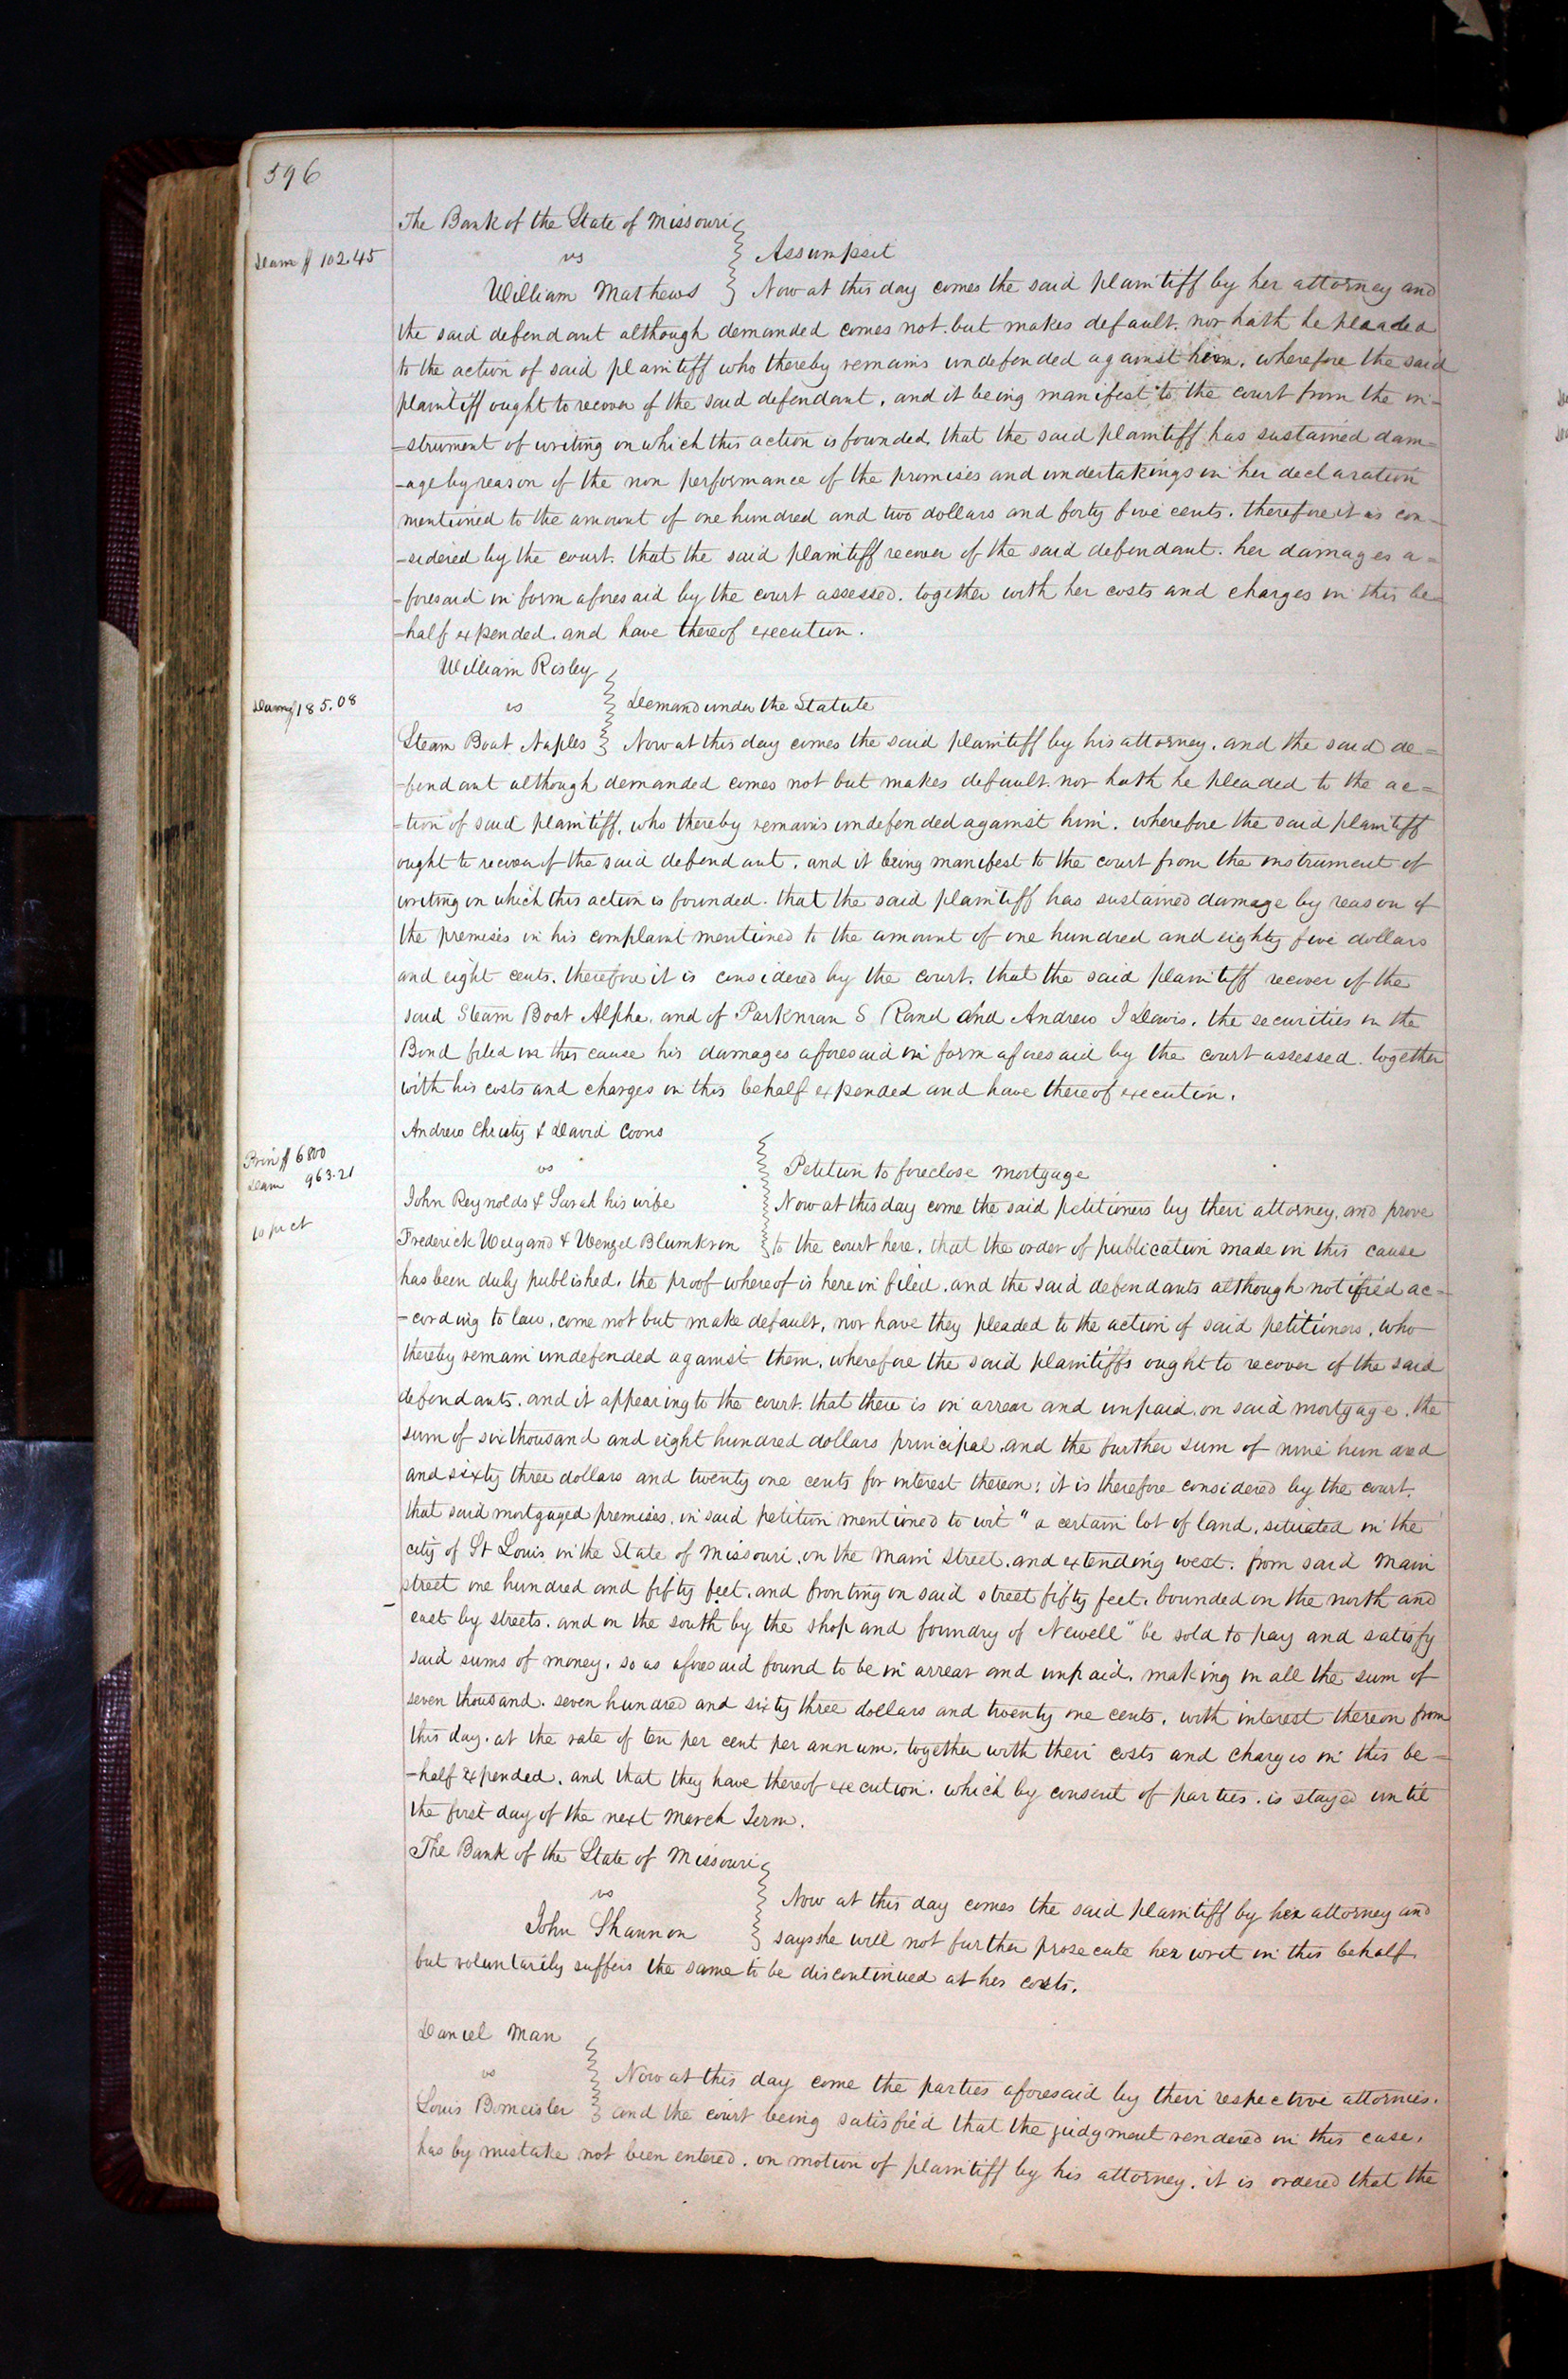 596
The Bank of the State of Missouri
Dam $ 102.45
vs
Assumpsit
William Mathews
Now at this day comes the said plaintiff by her attorney and
the said defendant although demanded comes not. but makes default. nor hath he pleaded
to the action of said plaintiff who thereby remains undefended against him. wherefore the said
plaintiff ought to recover of the said defendant. and it being manifest to the court from the in-
-strument of writing on which this action is founded. that the said plaintiff has sustained dam=
-age by reason of the non performance of the promises and undertakings in her declaration
mentioned to the amount of one hundred and two dollars and forty five cents. therefore it is con-
-sidered by the court. that the said plaintiff recover of the said defendant. her damages a=
-foresaid in form aforesaid by the court assessed. together with her costs and charges in this be=
=half expended. and have thereof execution.
William Risley
Dam $ 185.08
vs
Demand under the Statute
Steam Boat Naples
Now at this day comes the said plaintiff by his attorney. and the said de=
-fendant although demanded comes not but makes default. nor hath he pleaded to the ac=
-tion of said plaintiff. who thereby remains undefended against him. wherefore the said plaintiff
ought to recover of the said defendant. and it being manifest to the court from the instrument of
writing on which this action is founded. that the said plaintiff has sustained damage by reason of
the premises in his complaint mentioned to the amount of one hundred and eighty five dollars
and eight cents. therefore it is considered by the court. that the said plaintiff recover of the
said Steam Boat Alpha. and of Parkman S Rand and Andrew J Davis. the securities in the
Bond filed in this cause his damages aforesaid in form aforesaid by the court assessed. together
with his costs and charges in this behalf expended and have thereof execution.
Andrew Christy & David Coons
Prin $ 6800
Dam 963.21
10 pr ct
vs
Petition to foreclose mortgage
John Reynolds & Sarah his wife
Now at this day come the said petitioners by their attorney, and prove
Frederick Weigand & Wenzel Blumkron
to the court here. that the order of publication made in this cause
has been duly published. the proof whereof is here in filed. and the said defendants although notified ac-
-cording to law. come not but make default, nor have they pleaded to the action of said petitioners. who
thereby remain undefended against them. wherefore the said plaintiffs ought to recover of the said
defendants. and it appearing to the court. that there is in arrear and unpaid. on said mortgage. the
sum of six thousand and eight hundred dollars principal. and the further sum of nine hundred
and sixty three dollars and twenty one cents for interest thereon; it is therefore considered by the court.
that said mortgaged premises. in said petition mentioned to wit " a certain lot of land. situated in the
city of St Louis in the State of Missouri. on the main street. and extending west. from said main
street one hundred and fifty feet. and fronting on said street fifty feet. bounded on the north and
east by streets. and on the south by the shop and foundry of Newell" be sold to pay and satisfy
said sums of money. so as aforesaid found to be in arrear and unpaid. making in all the sum of
seven thousand. seven hundred and sixty three dollars and twenty one cents. with interest thereon from
this day. at the rate of ten per cent per annum. together with their costs and charges in this be-
-half expended. and that they have thereof execution. which by consent of parties. is stayed until
the first day of the next March Term.
The Bank of the State of Missouri
vs
Now at this day comes the said plaintiff by her attorney and
John Shannon
says she will not further prosecute her writ in this behalf.
but voluntarily suffers the same to be discontinued at her costs.
Daniel Man
vs
Now at this day come the parties aforesaid by their respective attornies.
Louis Bomeisler
and the court being satisfied that the judgment rendered in this case.
has by mistake not been entered. on motion of plaintiff by his attorney. it is ordered that the